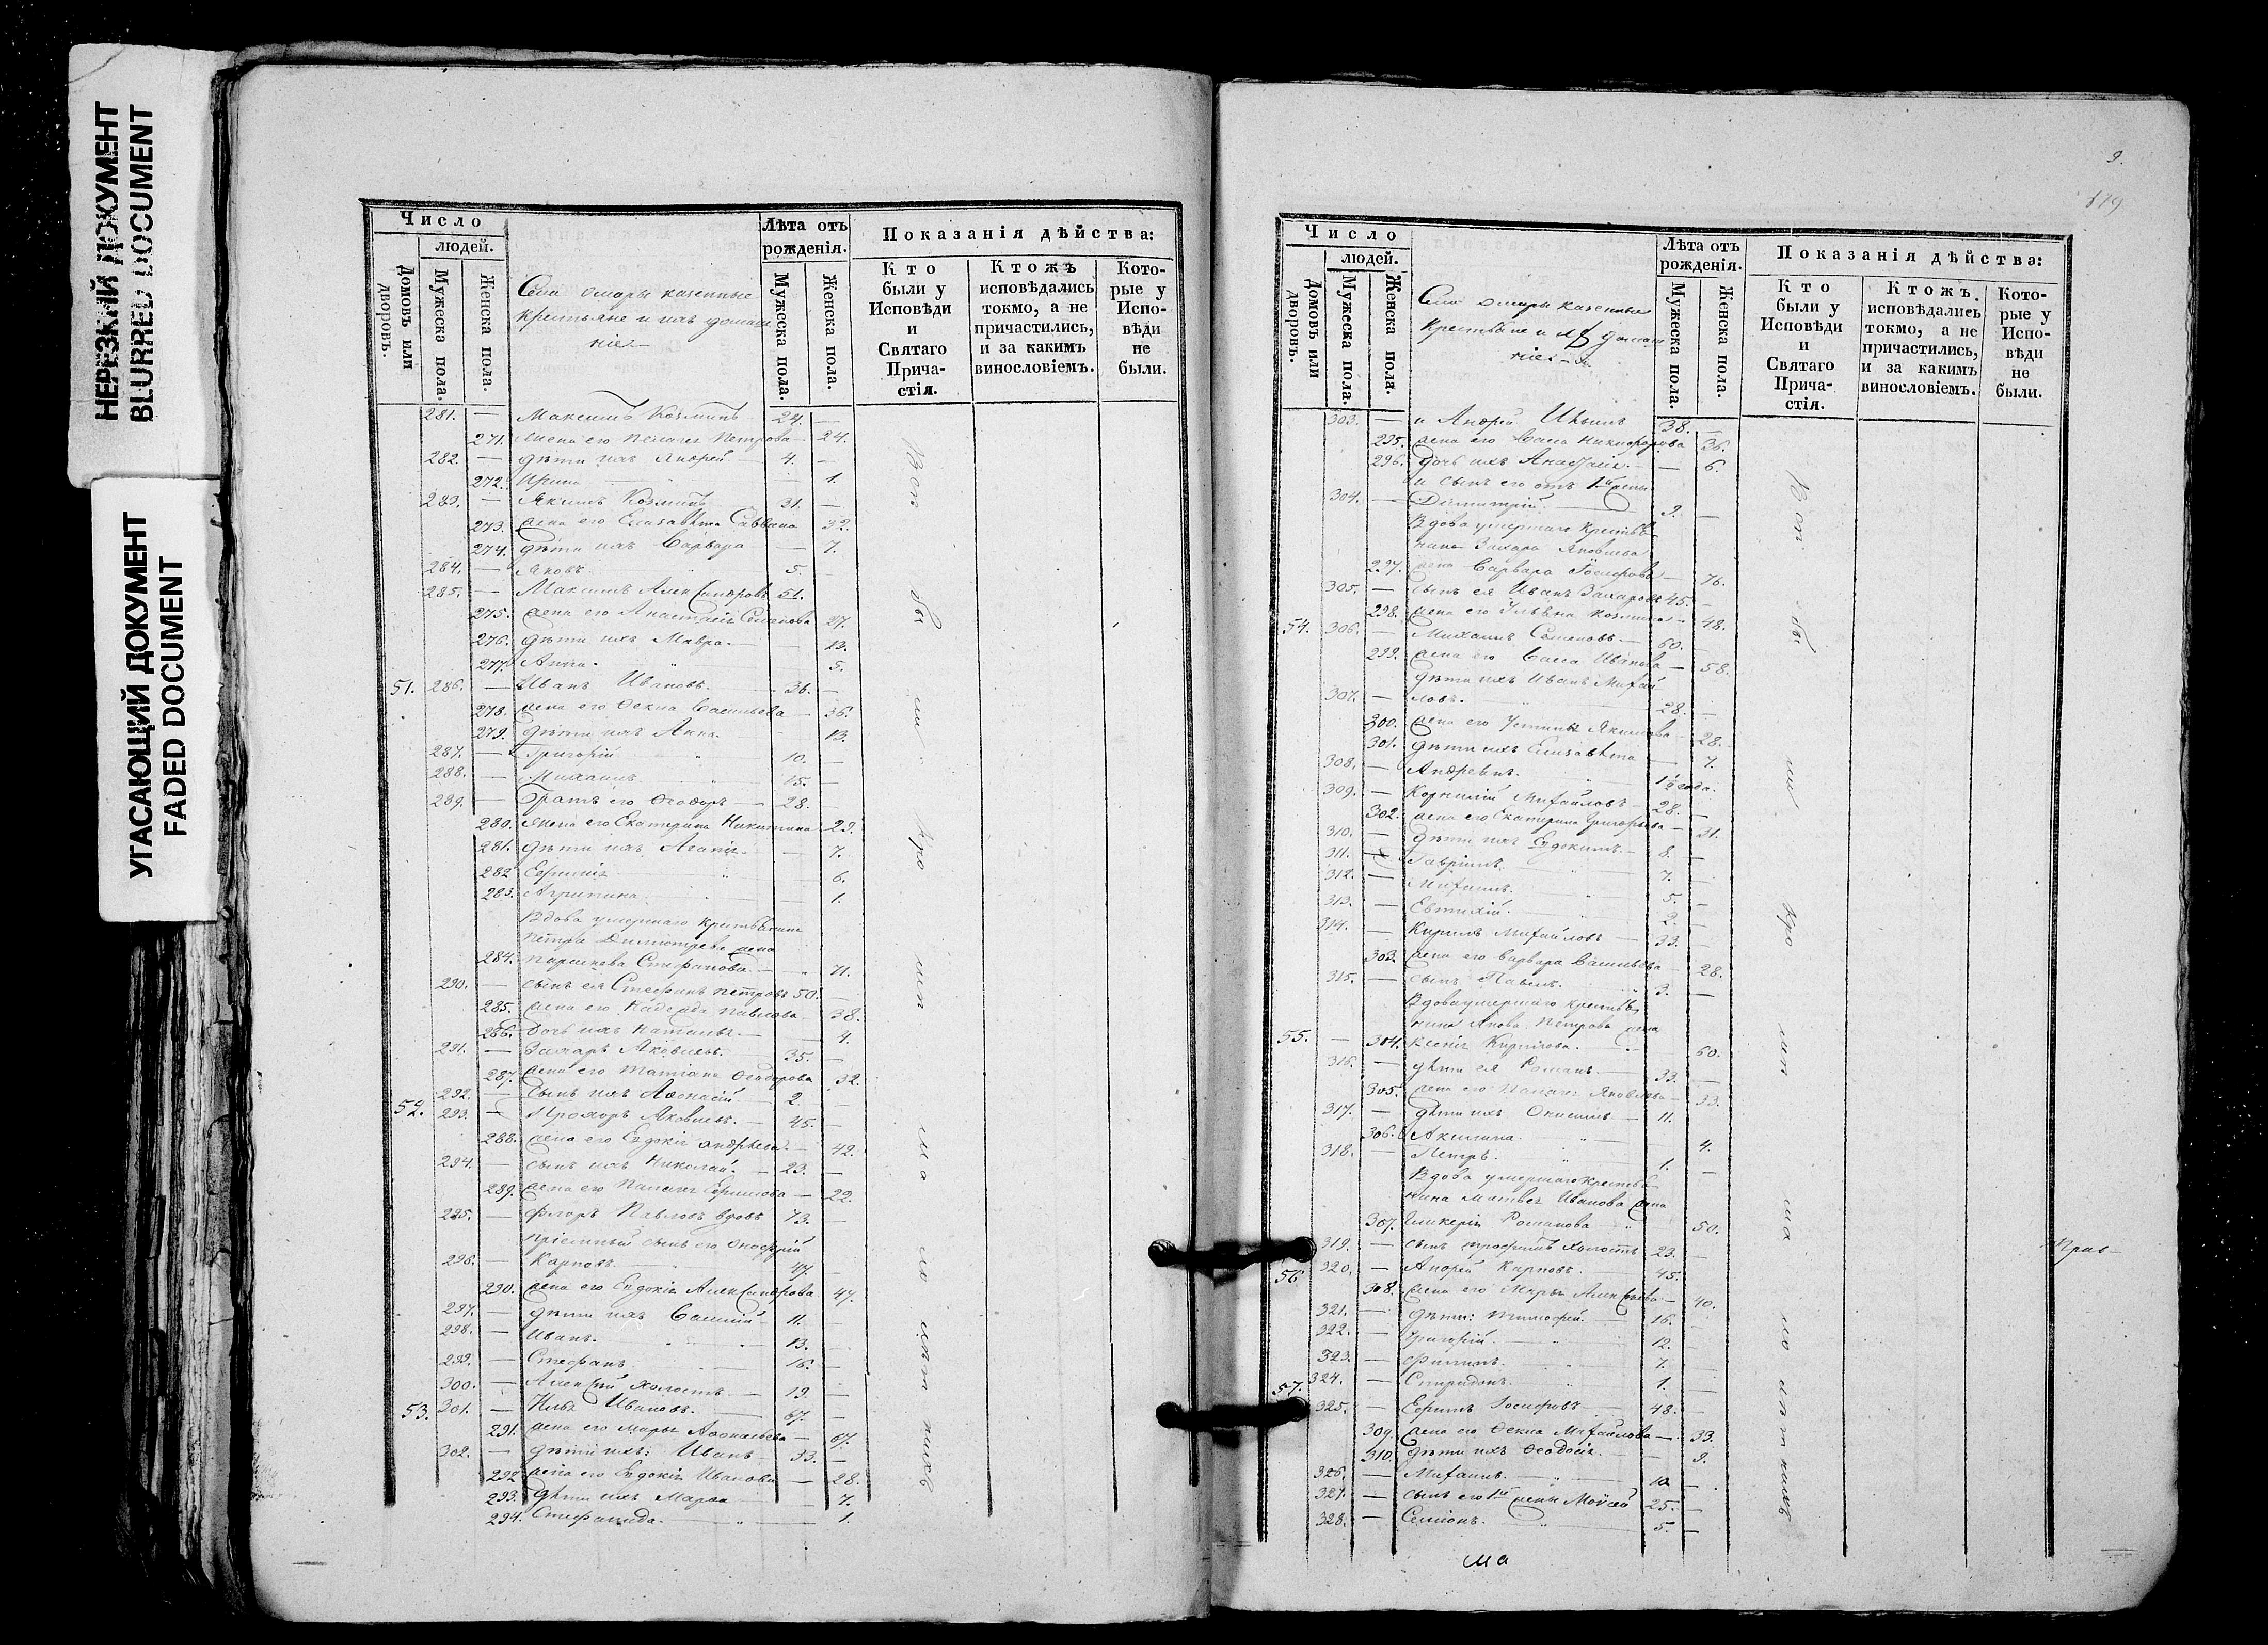 НЕРЕЗКИЙ ДОКУМЕНТ
BLURRED DOCUMENT
УГАСАЮЩИЙ ДОКУМЕНТ
FADED DOCUMENT
Число
людей.
Домовъ или дворовъ.
Мужеска пола.
Женска пола.
Села Омары казенные
крестьяне и ихъ домаш
ніе
Лѣта отъ рожденія.
Мужеска пола.
Женска пола.
Показанія дѣйства:
Кто были у Исповѣди и Святаго Прича-стія.
Ктожъ исповѣдались токмо, а не причастились, и за какимъ винословіемъ.
Кото-рые у Испо-вѣди не были.
281. — Максимъ Козминъ 24. —
271. жена его Пелагея Петрова — 24.
282. — дѣти ихъ Андрей — 4. —
272. Ирина — 1.
283. — Якимъ Козминъ 31. —
273. жена его Елизавета Саввина 32.
274. дѣти ихъ Варвара — 7.
284. — Яковъ 5.
285. — Максимъ Александровъ 51.
275. жена его Анастасія Семенова 27.
276. дѣти ихъ Мавра. — 13.
277. Анна. " 5.
51. 286. — Иванъ Ивановъ. — 36. —
278. жена его Ѳекла Васильева — 36.
279. дѣти ихъ Анна. 13.
287. — Григорій " 10. —
288. — Михаилъ " 15. —
289. — Братъ его Ѳеодоръ — 28. —
280. жена его Екатерина Никитина 29.
281. дѣти ихъ Агапія — 7.
282 Евфимія " 6.
283. Агрипина. — 1.
Вдова умершаго крестьянина
Петра Димитрева жена
284. Параскева Стефанова — " 71.
290. — сынъ ея Стефанъ Петровъ 50. —
285. жена его Надежда Павлова 38.
286. дочь ихъ Наталья. — 4.
291. — Захаръ Яковлевъ. 35. —
287. жена его Татіана Ѳеодорова 32.
292. — сынъ ихъ Аѳонасій — 2. —
52. 293. — Прохоръ Яковлевъ. — 45. —
288. жена его Евдокія Андреева. — 42.
294. — сынъ ихъ Николай. — 23. —
289. жена его Пелагея Ефимова — 22.
295. — Флоръ Павловъ вдовъ 73. —
пріемный сынъ его Онофрій
296. — Карповъ. 47. —
290. жена его Евдокія Александрова 47.
297. — дѣти ихъ Василій — 11. —
298. — Иванъ. " 13. —
299. — Стефанъ " 16. —
300. — Алексѣй холостъ — 19. —
53. 301. — Илья Ивановъ. 67. —
291. жена его Марья Аѳонасьева — 67.
302. — дѣти ихъ: Иванъ 33. —
292 жена его Евдокія Иванова — 28.
293. дѣти ихъ Марѳа — 7.
294. Стефанида. " 1.
9.
179
Число
людей.
Домовъ или дворовъ.
Мужеска пола.
Женска пола.
Села Омары казенные
крестьяне и ихъ домаш
ніе
Лѣта отъ рожденія.
Мужеска пола.
Женска пола.
Показанія дѣйства:
Кто были у Исповѣди и Святаго Прича-стія.
Ктожъ исповѣдались токмо, а не причастились, и за какимъ винословіемъ.
Кото-рые у Испо-вѣди не были.
303. — и Андрей Ильинъ 38. —
295. жена его Васса Никифорова 36.
296. дочь ихъ Анастасія. — 6.
и сынъ его отъ 1й жены
304. — Димитрій. 9. —
Вдова умершаго крестья
нина Захара Яковлева
297. жена Варвара Іосифова — 76.
305. — сынъ ея Иванъ Захаровъ 45. —
298. жена его Ульяна Козмина — 48.
54. 306. — Михаилъ Семеновъ. — 60. —
299. жена его Васса Иванова — 58.
дѣти ихъ Иванъ Михай
307. — ловъ. " 28. —
300. жена его Устинья Якимова — 28.
301. дѣти ихъ Елизавета — 7.
308. — Андреянъ. 1½ года.
309. — Корнилій Михайловъ — 28. —
302. жена его Екатерина Григорьева — 31.
310. — дѣти ихъ Евдокимъ. — 8. —
311. — Гавріилъ. " 7. —
312. — Михаилъ. " 5. —
313. — Евтихій. " 2. —
314. — Кирилъ Михайловъ — 33. —
303. жена его Варвара Васильева — 28.
315. — сынъ Павелъ. 3. —
Вдова умершаго крестья
нина Якова Петрова жена
55. — 304. Ксенія Кирилова. " 60.
316. — дѣти ея Романъ. — 33. —
305. жена его Пелагея Яковлева — 33.
317. — дѣти ихъ Онисимъ — 11. —
306. Акилина. " 4.
318. — Петръ. " 1. —
Вдова умершаго крестья
нина Матвея Иванова жена
307. Гликерія Романова " 50.
319. — сынъ Трофимъ холостъ 23. —
56 320. — Андрей Карповъ. — 45. —
308. жена его Марья Алексѣева — 40.
321. — дѣти: Тимофей. 16. —
322. — Григорій. " 12. —
323. — Филипъ. " 7. —
324. — Спиридонъ. " 1. —
57. 325. — Ефимъ Іосифовъ 48. —
309. жена его Ѳекла Михайлова — 33.
310. дѣти ихъ Ѳеодосія. — 9.
326. — Михаилъ. " 10 —
327. — сынъ его 1й жены Мойсей 25. —
328. — Семіонъ. " 5. —
ма